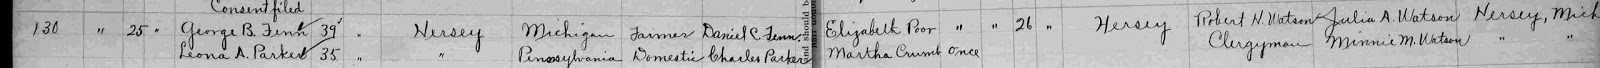 Consent filed
130 " 25 " George B. Fenn 39 " Hersey Michigan Farmer Daniel C. Fenn Elizabeth Poor " " 26 " Hersey Robert N. Watson Julia A. Watson Hersey, Mich
Leona A. Parker 35 " " Pennsylvania Domestic Charles Parker Martha Crumb once Clergyman Minnie M. Watson " "